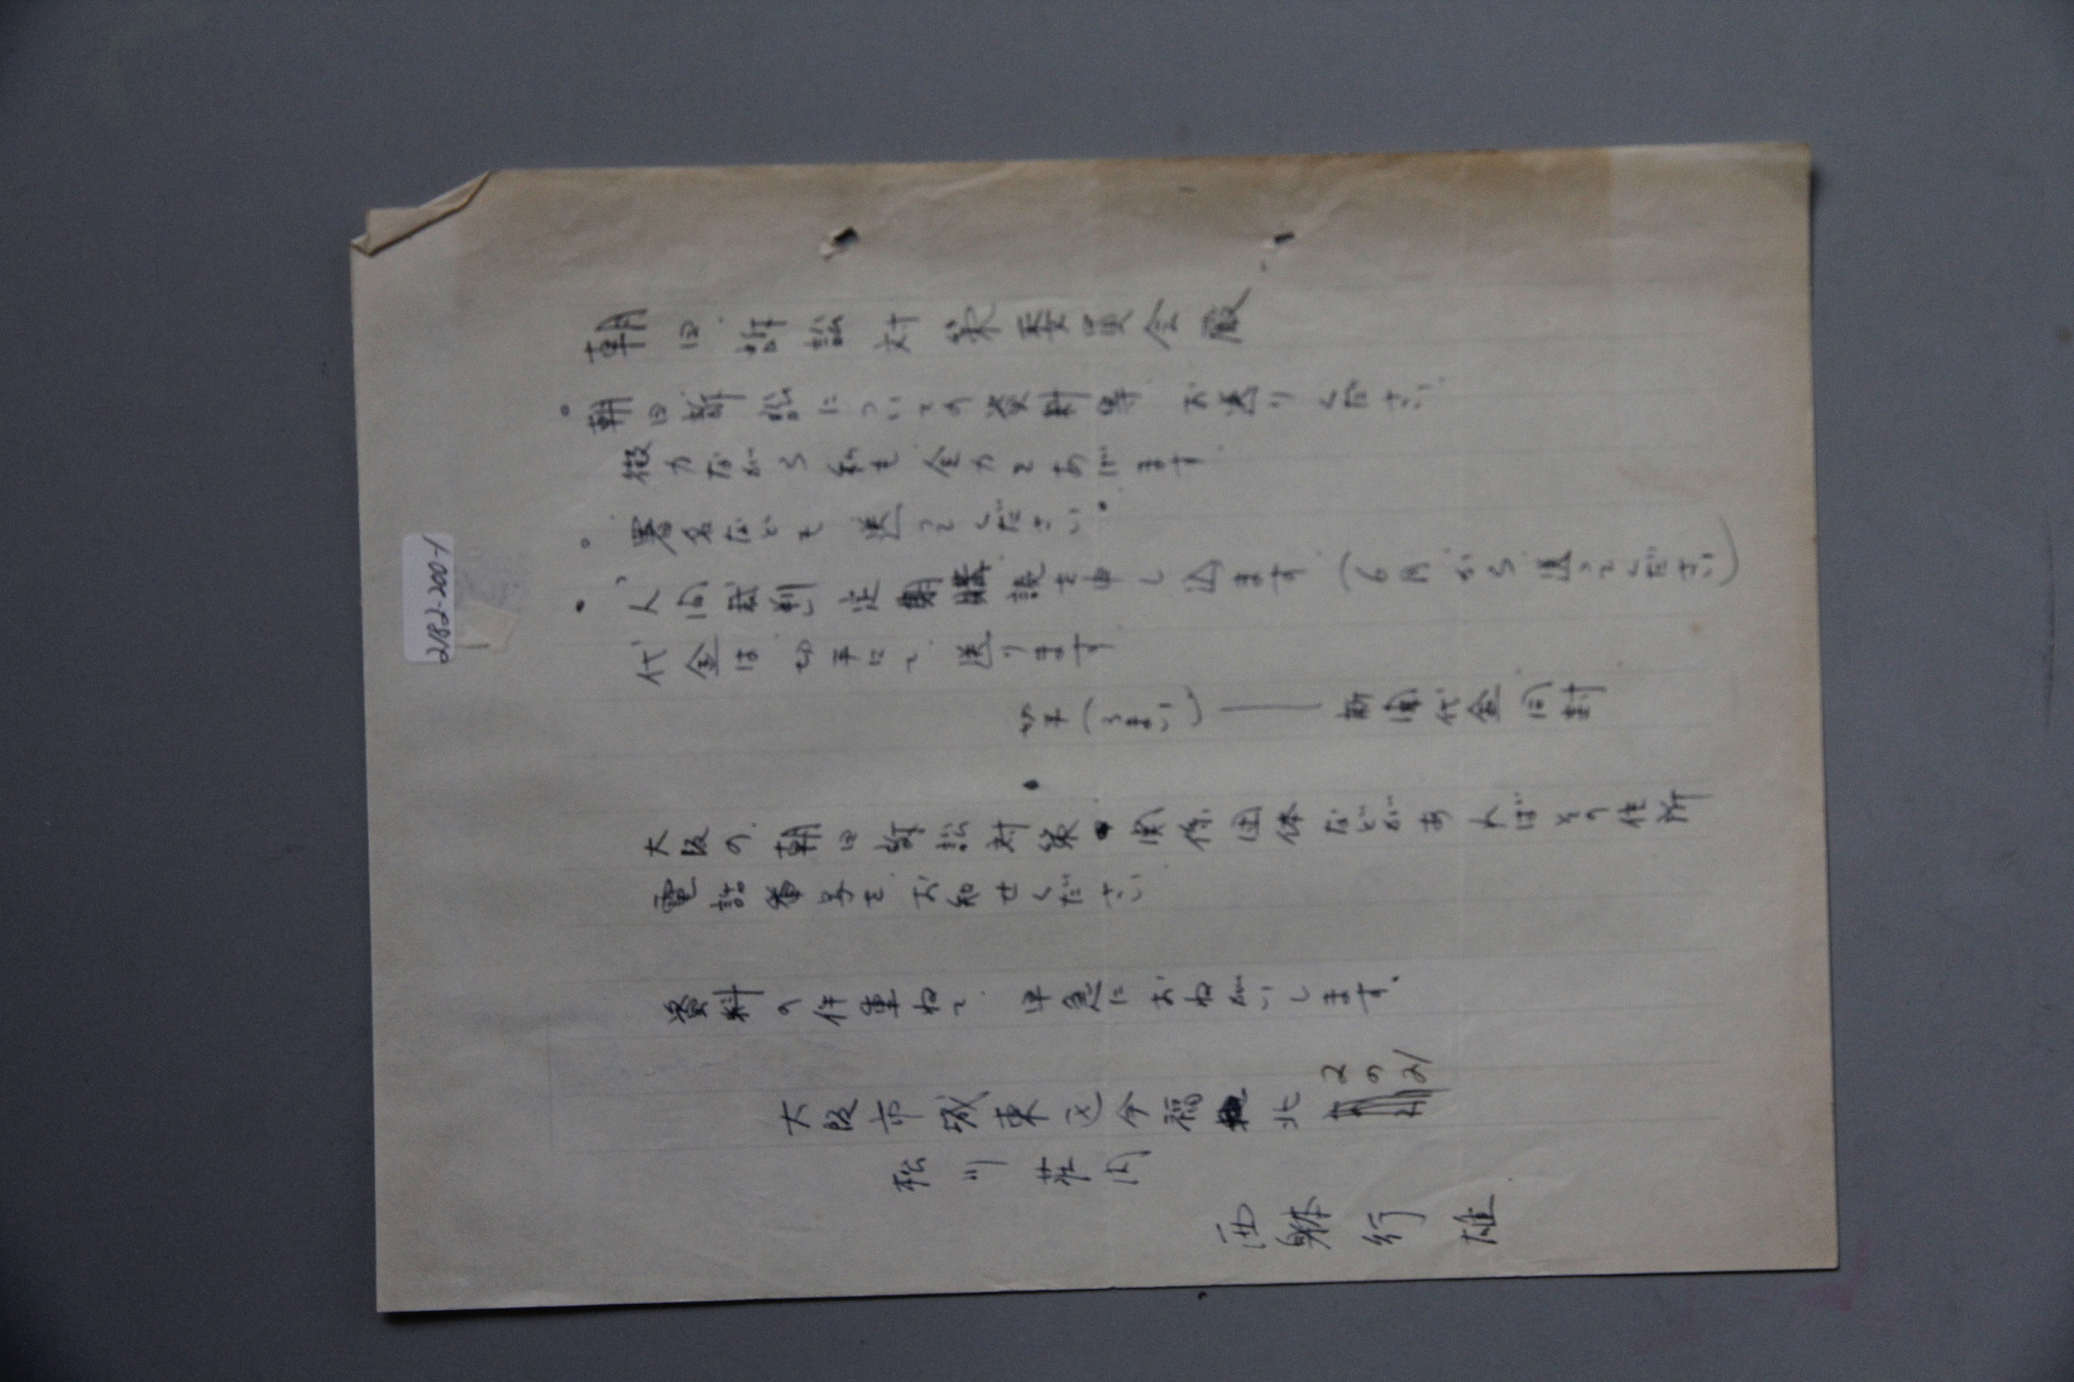 2182-200-1
朝日訴訟対策委員会殿
○ 朝日訴訟についての資料等 お送りください
微力ながら私も全力をあげます
○ 署名なども 送ってください。
○ 人間裁判 定期購読を申し込ます (6月から送ってください)
代金は切手にて送ります
切手() 新聞代金同封
大阪の朝日訴訟対策 関係団体などがあればその住所
電話番号を お知せください
資料の件重ねて 早急におねがいします、
大阪市城東区今福 北 2の21
松川荘内
西 行雄